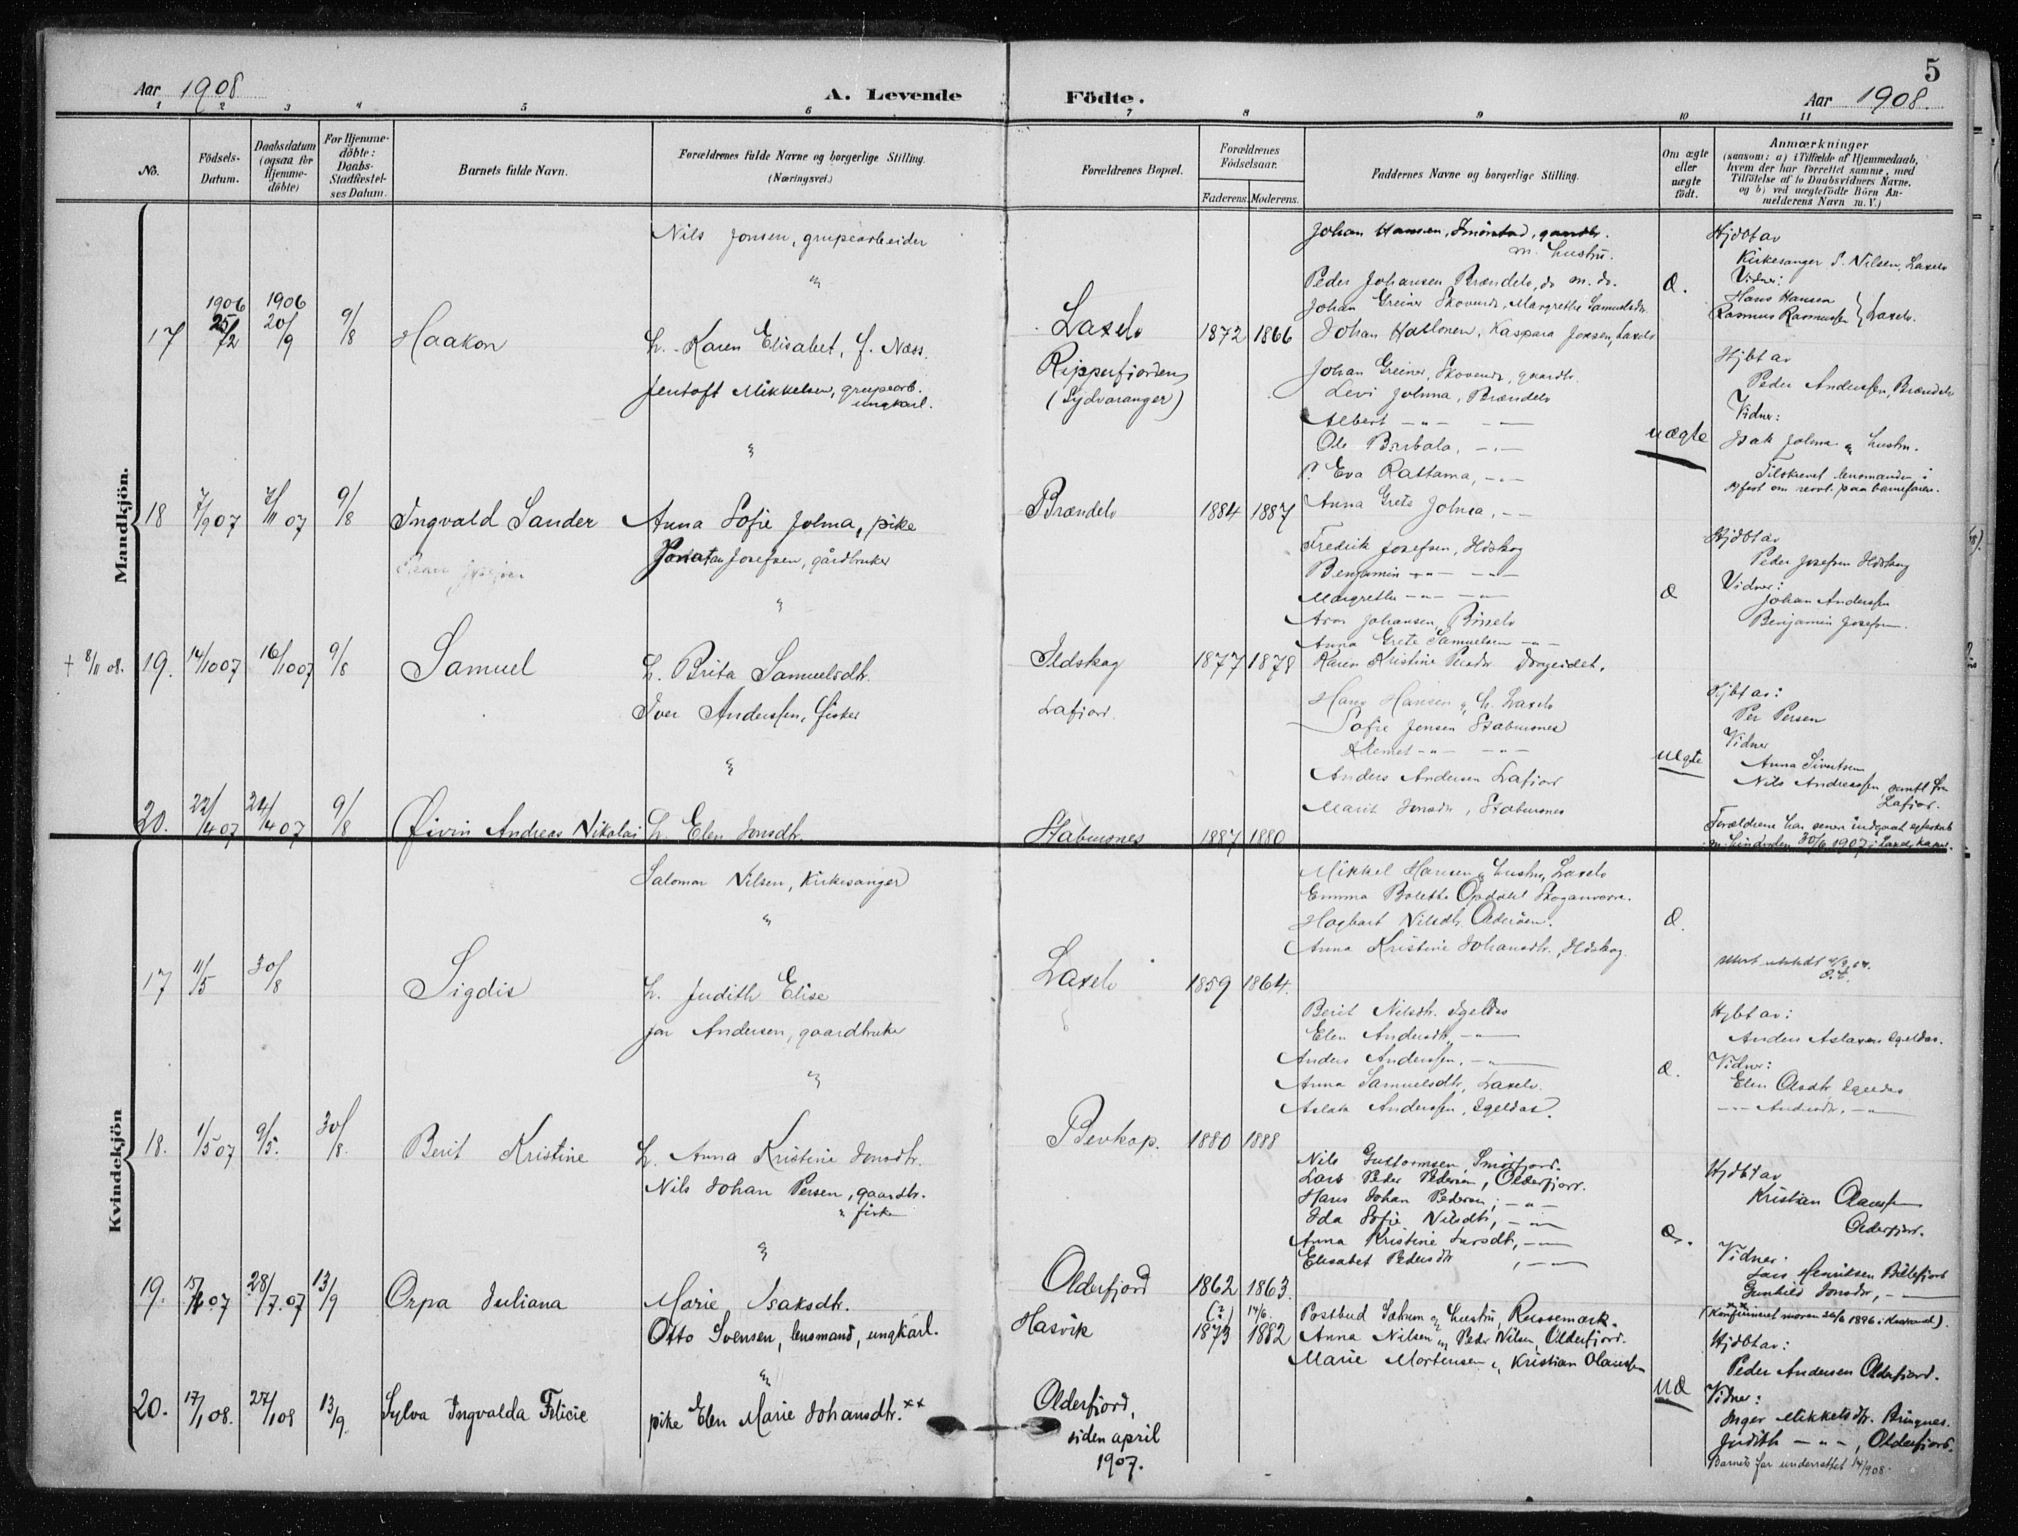 5
Aar 1908
A. Levende
Födte.
Aar 1908.
1 2 3 4 5 6 7 8 9 10 11
No.
Födsels-
Datum.
Daabsdatum
(ogsaa for
Hjemme-
döbte)
For Hjemme-
döbte:
Daabs-
Stadfæstel-
ses Datum.
Barnets fulde Navn.
Forældrenes fulde Navne og borgerlige Stilling.
(Næringsvei.)
Forældrenes Bopæl.
Forældrenes
Födselsaar.
Faderens. Moderens.
Faddernes Navne og borgerlige Stilling.
Om ægte
eller
uægte
födt.
Anmærkninger
(saasom: a) i Tilfælde af Hjemmedaab,
hvem der har forrettet samme, med
Tilföielse af to Daabsvidners Navne,
og b) ved uægtefödte Börn An-
melderens Navn m. V.)
Mandkjön.
17
1906
25/2
1906
20/9
9/8
Haakon
Nils Jonsen, grupearbeider
"
h. Karen Elisabet, f. Næss.
Laxelv
1872 1866
Johan Hansen, Smørstad, gaardbr.
m. hustru.
Peder Johansen Brændelv, do m. do.
Johan Greiner Skovnes, Margrethe Samuelsdr.
Johan Hallonen, Kaspara Jensen, Laxelv
Æ.
Hjdbt av
Kirkesanger S. Nilsen, Laxelv
Vidner:
Hans Hansen
Rasmus Rasmussen } Laxelv.
18
7/9 07
7/11 07
9/8
Ingvald Sander
Jentoft Mikkelsen, grupearb.
ungkarl.
"
Anna Sofie Jolma, pike
Ripperfjorden
(Sydvaranger)
Brændelv
1884 1887
Johan Greiner, Skovnes, gaardbr.
Levi Jolma, Brændelv
Albert -"- -"-
Ole Barbala, -"-
P. Eva Rattama, -"-
Anna Grete Jolma, -"-
uægte
Hjbt av
Peder Anderssen, Brændelv
Vidner:
Isak Jolma og hustru.
Tilskrevet lensmanden i
+ 8/11 08.
19.
14/10 07
16/10 07
9/8
Samuel
Jonatan Josefsen, gårdbruker
"
h. Brita Samuelsdtr.
Ildskog
1877 1878
Fredrik Josefsen, Ildskog
Benjamin -"- -"-
Margrethe -"- -"-
Aron Johansen,
Anna Grete Samuelsen -"-
Karen Kristine Pedersdr
Æ
Hjdbt av
Peder Josefsen Ildskog
Vidner:
Johan Anderssen
Benjamin Josefsen.
20.
22/4 07
24/4 07
9/8
Øivin Andreas Nikolai
Iver Anderssen, fisker
"
h. Elen Jonsdtr.
Lafjord.
Stabursnes
1887 1880
Hans Hansen og h. Laxelv
Sofie Jensen Stabursnes
Klemet -"- -"-
Anders Andersen Lafjord
Marit Jonsdr, Stabursnes
Uægte
Hjbt av:
Per Persen
Vidner
Anna Sivertsen
Nils Andreassen, samtl. fra
Lafjor.
Forældrene har senere indgaat egteskab
Kvindekjön
17
11/5
30/8
Sigdis
Salomon Nilsen, Kirkesanger
"
h. Judith Elise
Laxelv
1859 1864.
Mikkel Hansen og hustru, Laxelv
Emma Bolette Opdahl Skoganvarre.
Hagbart Nilsdtr. Olderøen.
Anna Kristine Johansdtr, Ildskog
Æ.
18.
1/5 07
9/5.
30/8.
Berit Kristine
Jon Andersen, gaardbruker
"
h. Anna Kristine Jonsdtr.
Bevkop.
1880 1888
Berit Nilsdtr. Igeldas
Elen Andersdtr, -"-
Anders Anderssen, -"-
Anna Samuelsdtr, Laxelv.
Aslak Anderssen, Igeldas.
Æ.
Hjbt av:
Anders Aslaksen Igeldas.
Vidner:
Elen Olsdtr. Igeldas
-"- Andersdr, -"-
19.
28/7.07
13/9
Orpa Juliana
Nils Johan Persen, gaardbr.
" fisker
"
Marie Isaksdtr.
Olderfjord
1862 1863.
Nils Guttormsen, Smørfjord.
Lars Peder Pedersen, Olderfjord.
Hans Johan Pedersen, -"-
Ida Sofie Nilsdtr, -"-
Anna Kristine Larsdtr, -"-
Elisabet Pedersdtr, -"-
Æ.
Hjdbt av
Kristian Olaussen
Olderfjord.
Vidner:
Lars Henriksen Billefjord
Gunhild Jonsdr, -"-
20.
17/1 08.
27/1 08
13/9.
Sylva Ingvalda Felicie
Otto Svensen, lensmand, ungkarl.
"
pike Elen Marie Johansdtr. xx
Hasvik
Olderfjord,
siden april
1907.
(?)
1873
14/6.
1882
Postbud Jakum og hustru Russemark.
Anna Nilsen, Peder Nilsen, Olderfjord.
Marie Mortensen, Kristian Olaussen
UÆ
(xx Konfirmert moren 26/6 1896 i
Hjdbt av:
Peder Andersen Olderfjord.
Vidner:
Inger Mikkelsdtr. Bringnes.
Judith -"-, Olderfjord.
Barnets far underrettet 14/9 08.